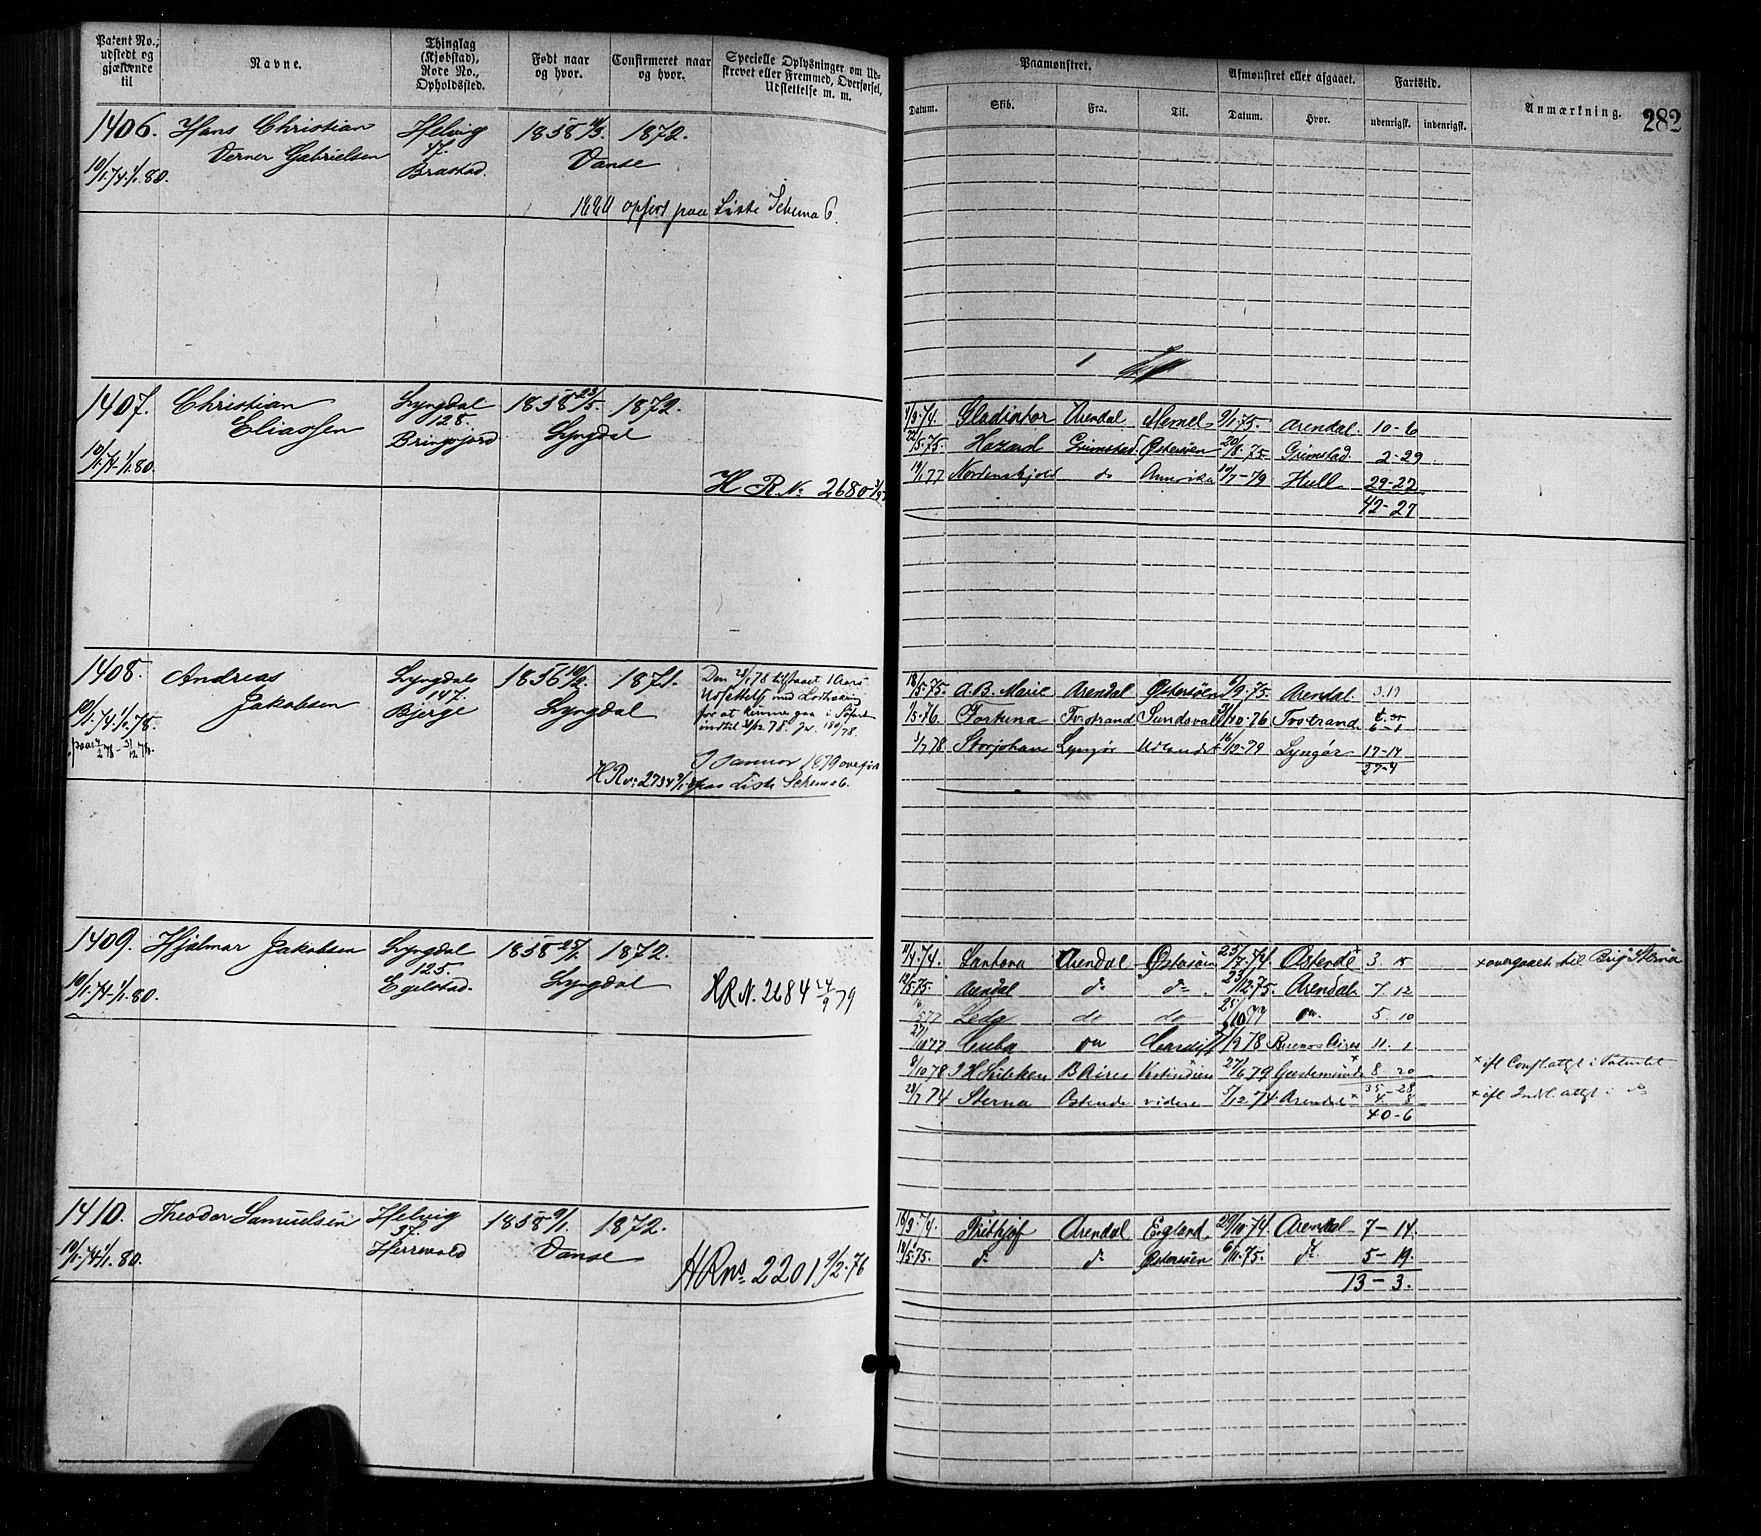 Patent No.,
udstedt og
gjældende
til
Navne.
Thinglag
(Kjøbstad),
Rode No.,
Opholdssted.
Født naar
og hvor.
Confirmeret naar
og hvor.
Specielle Oplysninger om Ud-
skrevet eller Fremmed, Overførsel,
Udslettelse m. m.
Paamønstret.
Afmønstret eller afgaaet.
Fartstid.
Anmærkning.
282
Datum.
Skib.
Fra.
Til.
Datum.
Hvor.
udenrigsk.
indenrigsk.
1406. Hans Christian Helvig 1858 1872.
Verner Gabrielsen 47. Vanse
10/1.74-1/1.80. Brastad.
opført paa Liste Schema 6.
1407. Christian Lyngdal 1858 23/5. 1872.
Eliassen 128. Lyngdal
10/1.74-1/1.80. Bringsjord
H R. No 2680
1/9.74. Gladiator Arendal Memel 9/1.75. Arendal. 10-6
22/5.75. Hazard Grimstad. Østersøen 20/8.75 Grimstad. 2-29
19/1.77 Nordenskjold do Amerika 10/7-79 Hull 29-22
42-27
1408. Andreas Lyngdal 1856 10/9. 1871.
Jakobsen 147. Lyngdal
10/1.74-1/1.78. Bjerge
Den 28/1 78 tilstaaet 1 Aars
Udsættelse med Lodtrækning
for at kunne gaa i Søfart
indtil
Januar 1879 overført
HR No 2734 paa Liste Schema 6.
18/5.75. A.B. Marie Arendal Østersøen 9/9.75. Arendal 3.19
1/5-76 Fortuna Tvedstrand Sundsvall 31/10-76 Tvestrand 6-1
3/7 78 Storjohann Lyngør Udlandet 16/12-79 Lyngør 17-14
27-4
1409. Hjalmar Jakobsen Lyngdal 1858 25/1. 1872.
125. Lyngdal
10/1.74-1/1.80. Egelstad.
HR N. 2684 24/9 79
11/4.74. Santona Arendal Østersøen 25/7.74. Ostende 3 15 x overgaaet til Brig Sterna
12/5.75. Arendal do do 23/12.75. Arendal 7 12
16/5 77 Leda do do 25/10 77 do 5 10
27/10 77 Cuba do Cardiff 78 Buenos Aires 11. 1
9/10 78 J H Lübken B Aires Vestindien 27/6 79 Geestemünde 8 20 x ifl Const. attest i Patentet
35-28
29/7 74 Sterna Ostende videre 7/12.74 Arendal x 4. 8 x ifl Indl. attest i do
40-6
1410. Theodor Samuelsen Helvig 1858 9/1. 1872.
37. Vanse
10/1.74-1/1.80. Herrevold
HR No. 2201 9/2.76
16/3.74. Frithjof Arendal England. 29/10.74 Arendal 7-14.
18/5.75. do do Østersøen 6/11.75. do 5-19.
13-3.